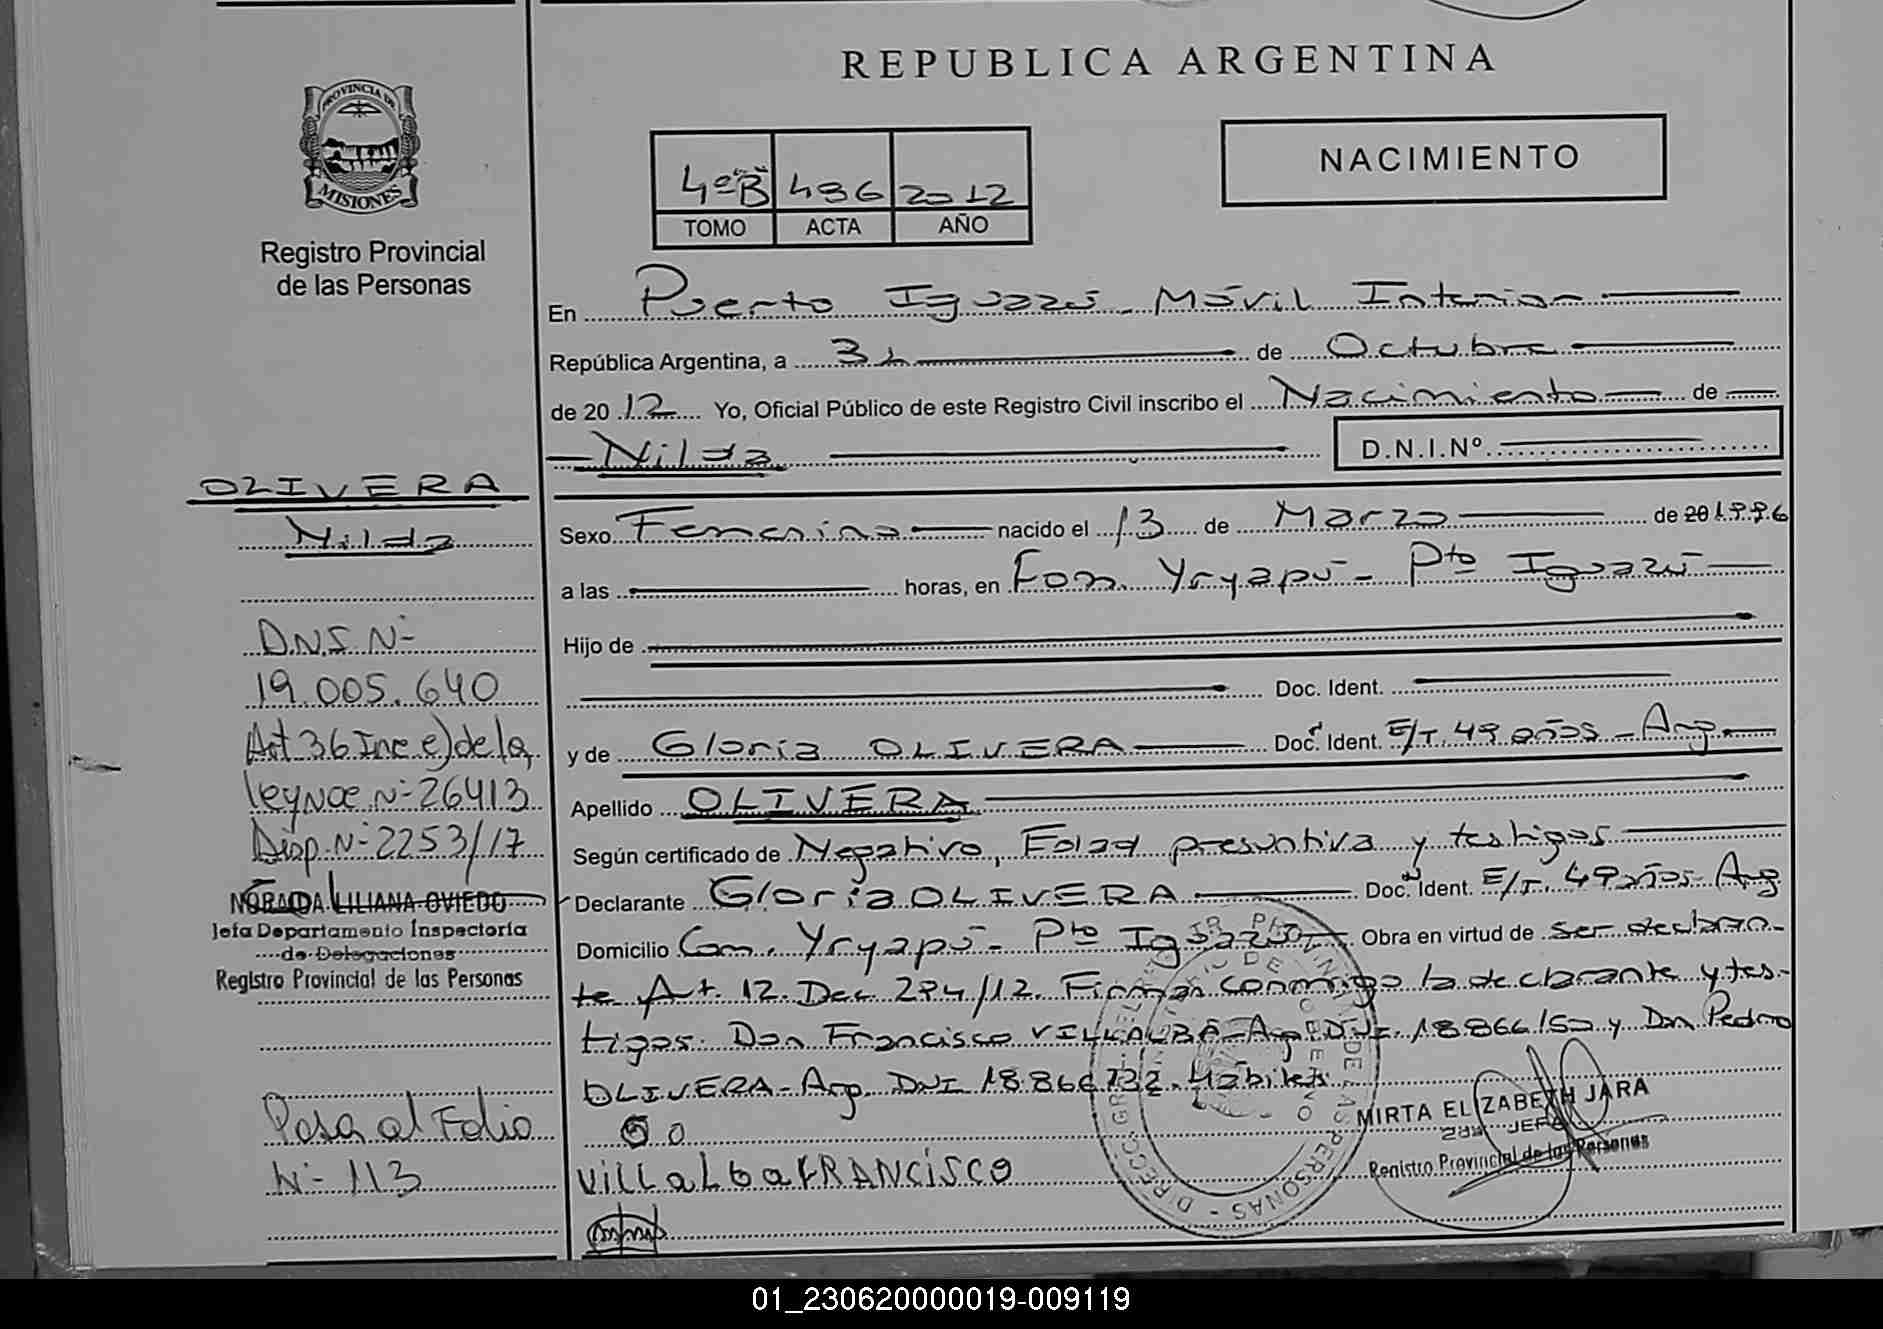 REPUBLICA ARGENTINA
PROVINCIA DE
MISIONES
Registro Provincial
de las Personas
4º "B" 496 2012
TOMO ACTA AÑO
NACIMIENTO
En Puerto Iguazú - Móvil Interior
República Argentina, a 31 de Octubre
de 2012 Yo, Oficial Público de este Registro Civil inscribo el Nacimiento de
Nilda D.N.I.Nº
OLIVERA
Nilda
D.N.I. Nº
19.005.640
Art 36 Inc e) de la
ley Nac Nº 26413
Disp. Nº 2253/17
NORAIDA LILIANA OVIEDO
Jefa Departamento Inspectoría
de Delegaciones
Registro Provincial de las Personas
Pasa al Folio
Nº 113
Sexo Femenino nacido el 13 de Marzo de 20 1996
a las horas, en Com. Yryapú - Pto Iguazú
Hijo de
Doc. Ident.
y de Gloria OLIVERA Doc. Ident. E/T. 49 años - Arg.
Apellido OLIVERA
Según certificado de Negativo, Edad presuntiva y testigos
Declarante Gloria OLIVERA Doc. Ident. E/T. 49 años - Arg
Domicilio Com. Yryapú - Pto Iguazú Obra en virtud de ser declaran-
te Art. 12. Dec. 294/12. Firman conmigo la declarante y tes-
tigos. Don Francisco VILLALBA - Arg DNI. 18.866.150 y Don Pedro
OLIVERA - Arg. DNI 18.866.732. Hábiles
VILLaLbaFRANCiSCO
MIRTA ELIZABETH JARA
2da JEFE
Registro Provincial de las Personas
01_230620000019-009119